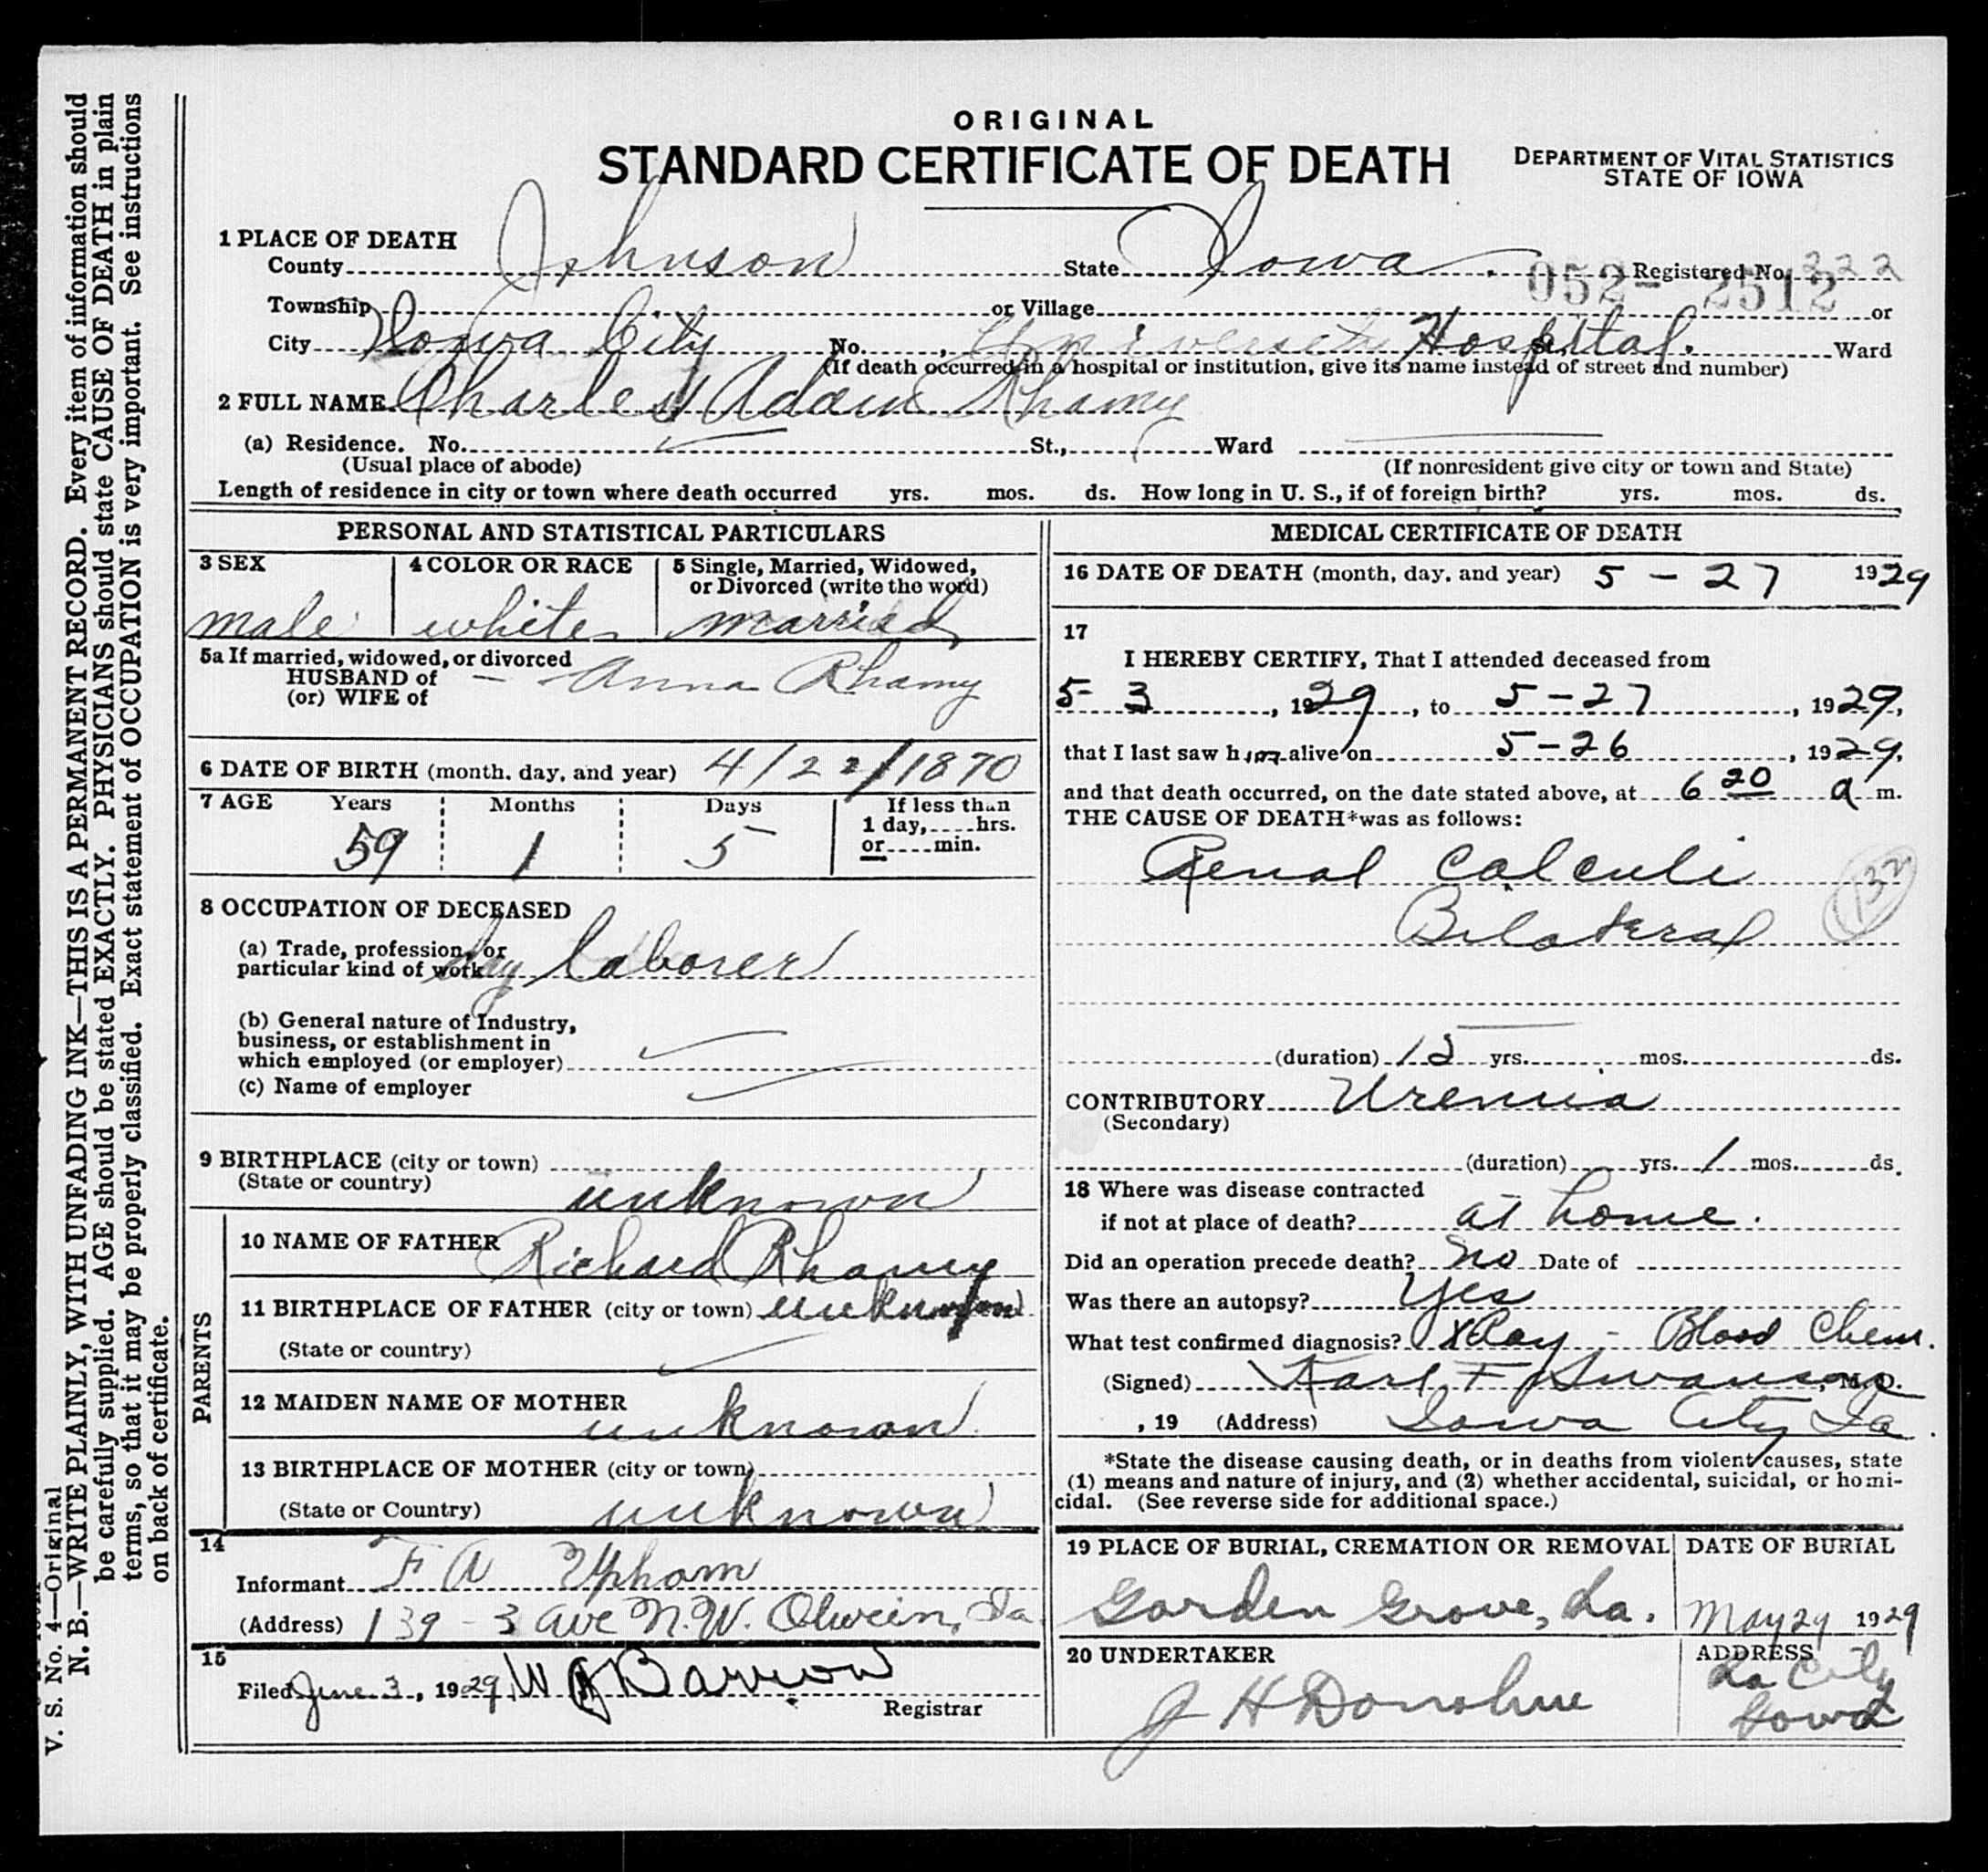 ORIGINAL
STANDARD CERTIFICATE OF DEATH
DEPARTMENT OF VITAL STATISTICS
STATE OF IOWA
1 PLACE OF DEATH
County Johnson State Iowa. Registered No. 222
052- 2512
Township or Village or
City Iowa City No. , University Hospital. Ward
(If death occurred in a hospital or institution, give its name instead of street and number)
2 FULL NAME Charles Adam Rhamy
(a) Residence. No. St., Ward
(Usual place of abode) (If nonresident give city or town and State)
Length of residence in city or town where death occurred yrs. mos. ds. How long in U. S., if of foreign birth? yrs. mos. ds.
PERSONAL AND STATISTICAL PARTICULARS
3 SEX 4 COLOR OR RACE 5 Single, Married, Widowed,
or Divorced (write the word)
male white married
5a If married, widowed, or divorced
HUSBAND of — Anna Rhamy
(or) WIFE of
6 DATE OF BIRTH (month, day, and year) 4/22/1870
7 AGE Years Months Days If less than
1 day, hrs.
or min.
59 1 5
8 OCCUPATION OF DECEASED
(a) Trade, profession, or
particular kind of work day laborer
(b) General nature of Industry,
business, or establishment in
which employed (or employer)
(c) Name of employer
9 BIRTHPLACE (city or town)
(State or country) unknown
PARENTS
10 NAME OF FATHER Richard Rhamy
11 BIRTHPLACE OF FATHER (city or town) unknown
(State or country)
12 MAIDEN NAME OF MOTHER
unknown
13 BIRTHPLACE OF MOTHER (city or town)
(State or Country) unknown
14
Informant F A Upham
(Address) 139 - 3 Ave N.W. Olwein, Ia
15
Filed June 3, 1929 W J Barrow
Registrar
MEDICAL CERTIFICATE OF DEATH
16 DATE OF DEATH (month, day, and year) 5 - 27 1929
17
I HEREBY CERTIFY, That I attended deceased from
5- 3, 1929, to 5-27, 1929,
that I last saw him alive on 5-26, 1929,
and that death occurred, on the date stated above, at 6 20 a m.
THE CAUSE OF DEATH* was as follows:
Renal Calculi
132
Bilateral
(duration) 15 yrs. mos. ds.
CONTRIBUTORY Uremia
(Secondary)
(duration) yrs. 1 mos. ds.
18 Where was disease contracted
if not at place of death? at home.
Did an operation precede death? No Date of
Was there an autopsy? Yes
What test confirmed diagnosis? XRay - Blood Chem.
(Signed) Karl F Swanson, M.D.
, 19 (Address) Iowa City Ia.
*State the disease causing death, or in deaths from violent causes, state
(1) means and nature of injury, and (2) whether accidental, suicidal, or homi-
cidal. (See reverse side for additional space.)
19 PLACE OF BURIAL, CREMATION OR REMOVAL DATE OF BURIAL
Garden Grove, Ia. May 29 1929
20 UNDERTAKER ADDRESS
J H Donohue Ia City
Iowa
N. B.—WRITE PLAINLY, WITH UNFADING INK—THIS IS A PERMANENT RECORD. Every item of information should
be carefully supplied. AGE should be stated EXACTLY. PHYSICIANS should state CAUSE OF DEATH in plain
terms, so that it may be properly classified. Exact statement of OCCUPATION is very important. See instructions
on back of certificate.
V. S. No. 4—Original